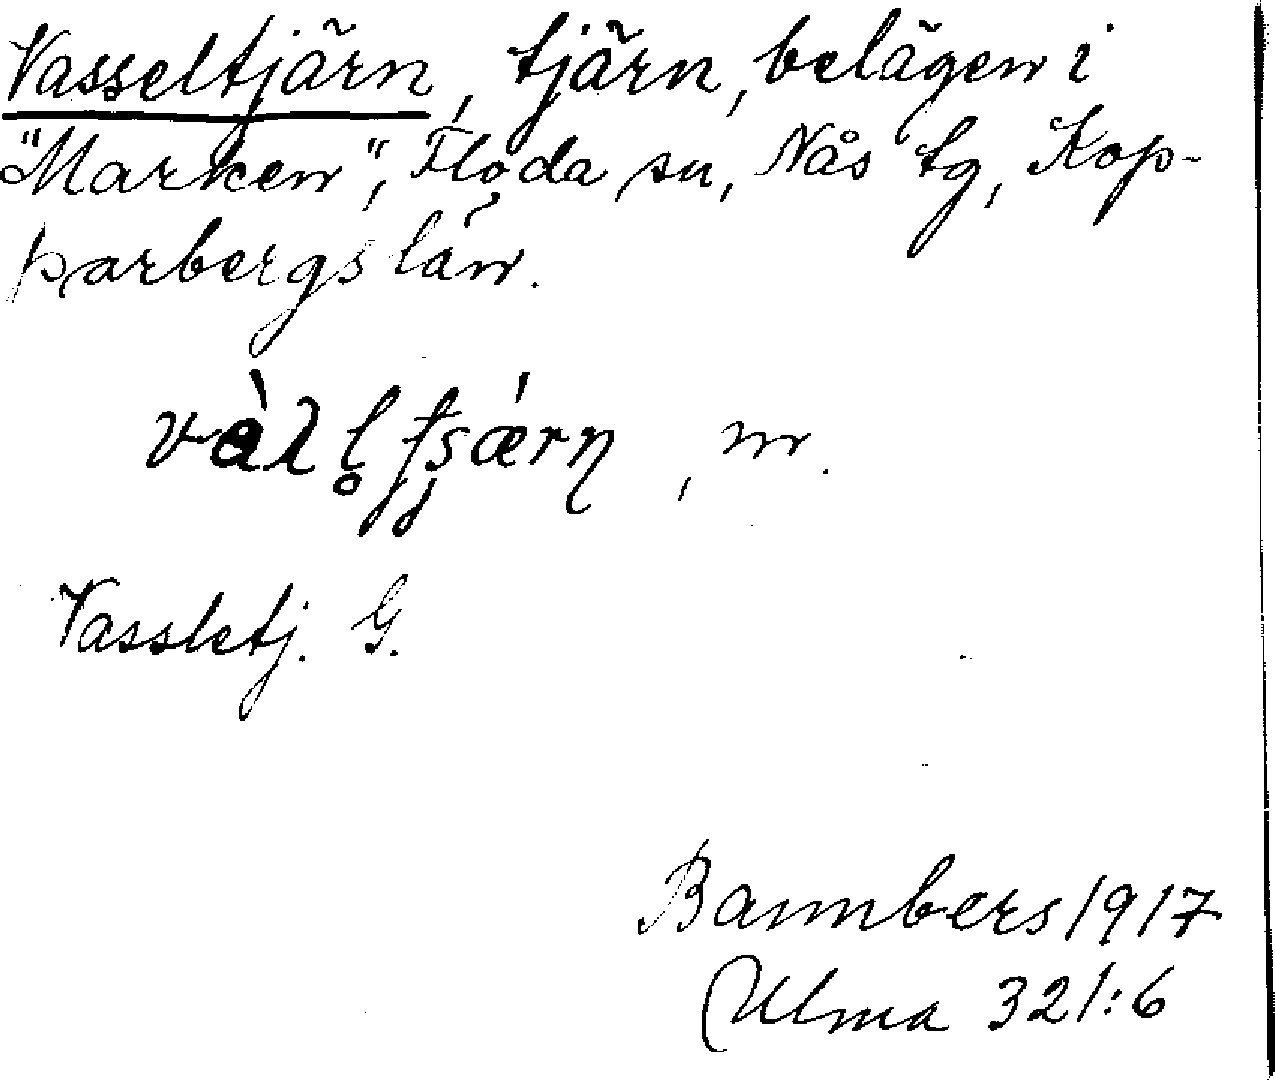 Vasseltjärn, tjärn, belägen i
"Marken", Floda sn, Nås tg, Kop-
parbergs län.
, m.
Vassletj. G.
Bannbers 1917
Ulma 321:6